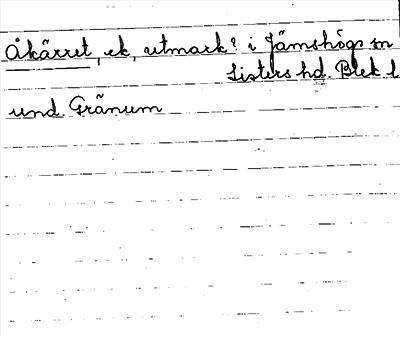 Åkärret, ek, utmark? i Jämshögs sn
Listers hd. Blek l
und. Gränum